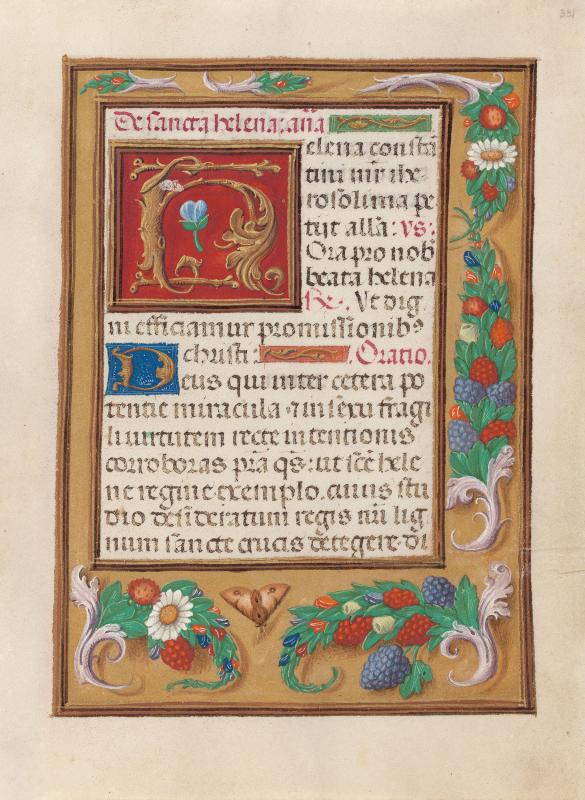 De sancta helena. aña
Helena constā
tini mr̄ ihe
rosolima pe
tijt alla: vs:
Ora pro nob̄
beata helena
Re. Vt dig
ni efficiamur promissionib⁹
christi: Oratio.
Deus qui inter cetera po
tentie miracula ⁊ in sexu fragi
li virtutem recte intentionis
corroboras pr̄a qs̄: ut sc̄e hele
ne regine exemplo. cuius stu
dio desideratum regis nr̄i lig
num sancte crucis detegere di